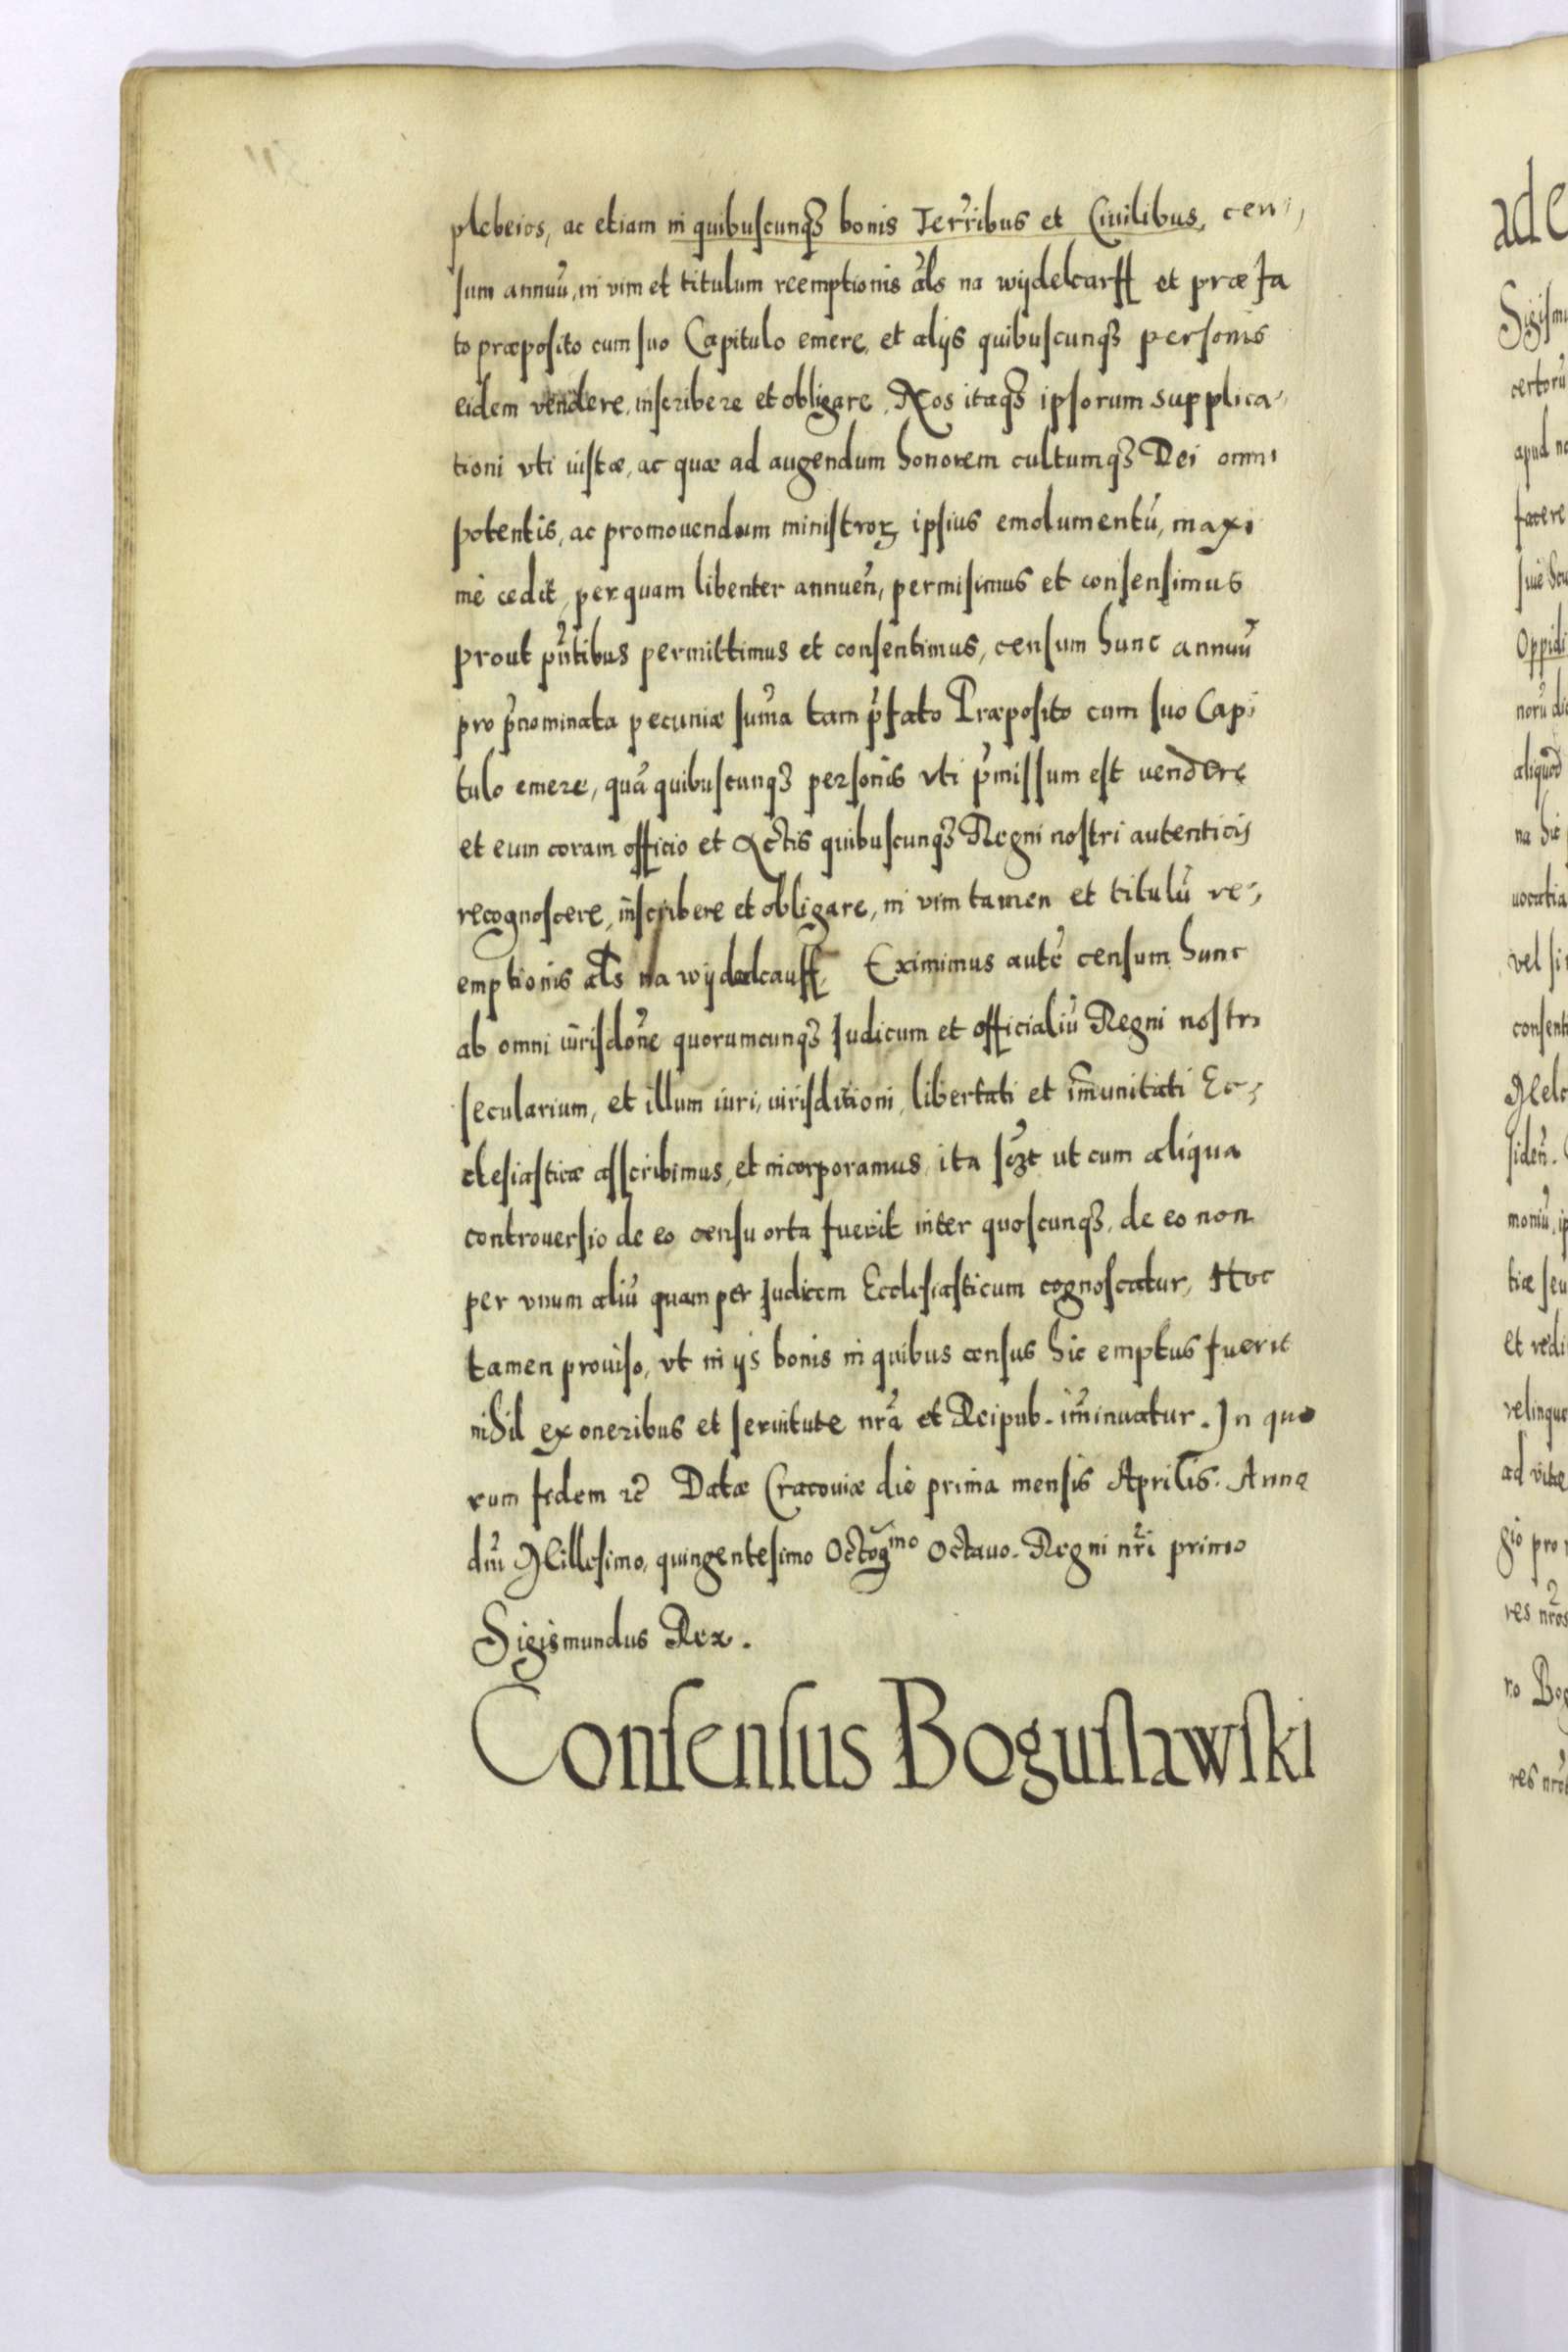 plebeios, ac etiam in quibuscunq₃ bonis Terr̃ibus et Ciuilibus, cen,
sum annuũ, in vim et titulum reemptionis al̃s na wijdelcarff et præfa
to præposito cum suo Capitulo emere, et alijs quibuscunq₃ personis
eidem vendere, inscribere et obligare, Nos itaq₃ ipsorum supplica,
tioni vti iustæ, ac quæ ad augendum honorem cultumq₃ Dei omni
potentis, ac promouendum ministroꝝ ipsius emolumentũ, maxi
mè cedit, perquam libenter annueñ, permisimus et consensimus
prout pñtibus permittimus et consentimus, censum hunc annuũ
pro p̃nominata pecuniæ sum̃a tam p̃fato Præposito cum suo Capi
tulo emere, quã quibuscunq₃ personis vti p̃missum est vendere
et eum coram officio et Actis quibuscunq₃ Regni nostri autenticis
recognoscere, inscribere et obligare, in vim tamen et titulũ re,
emptionis al̃s na wijdelcauff, Eximimus autẽ censum hunc
ab omni iurisdoñe quorumcunq₃ Judicum et officialiũ Regni nostri
secularium, et illum iuri, iurisditioni, libertati et im̃unitati Ec,
clesiasticæ asscribimus, et incorporamus, ita sczt ut cum aliqua
controuersio de eo censu orta fuerit inter quoscunq₃, de eo non
per vnum aliũ quam per Judicem Ecclesiasticum cognoscatur, Hoc
tamen prouiso, vt in ijs bonis in quibus census hic emptus fuerit
nihil ex oneribus et seruitute nr̃a et Reipub. im̃inuatur. In quo
rum fidem &c̃ Datæ Cracouiæ die prima mensis Aprilis. Anno
dñi Millesimo, quingentesimo Octogmo Octauo. Regni nr̃i primo
Sigismundus Rex.
Consensus Boguslawski